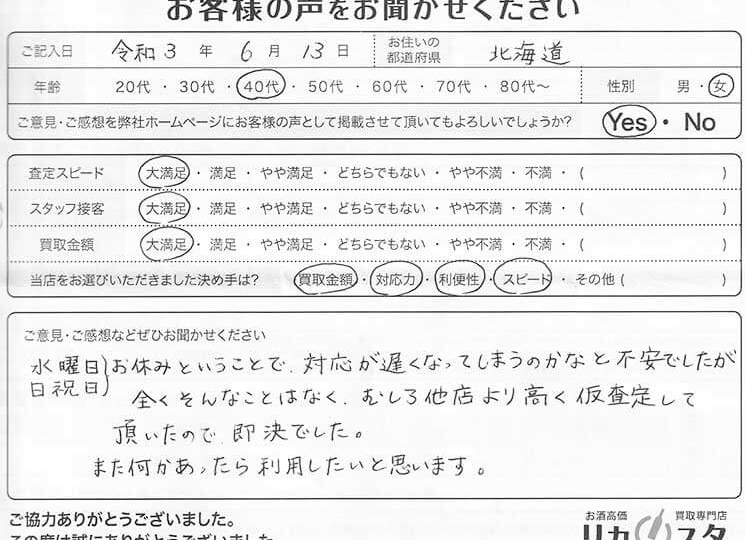 お客様の声をお聞かせください
ご記入日 令和3年6月13日 お住いの都道府県 北海道
年齢 20代・30代・40代・50代・60代・70代・80代～ 性別 男・女
ご意見・ご感想を弊社ホームページにお客様の声として掲載させて頂いてもよろしいでしょうか? Yes・No
査定スピード 大満足・満足・やや満足・どちらでもない・やや不満・不満・( )
スタッフ接客 大満足・満足・やや満足・どちらでもない・やや不満・不満・( )
買取金額 大満足・満足・やや満足・どちらでもない・やや不満・不満・( )
当店をお選びいただきました決め手は? 買取金額・対応力・利便性・スピード・その他( )
ご意見・ご感想などぜひお聞かせください
水曜日
日祝日}お休みということで、対応が遅くなってしまうのかなと不安でしたが
全くそんなことはなく、むしろ他店より高く仮査定して
頂いたので、即決でした。
また何かあったら利用したいと思います。
ご協力ありがとうございました。
この度は誠にありがとうございました
お酒高価 買取専門店
リカスタ